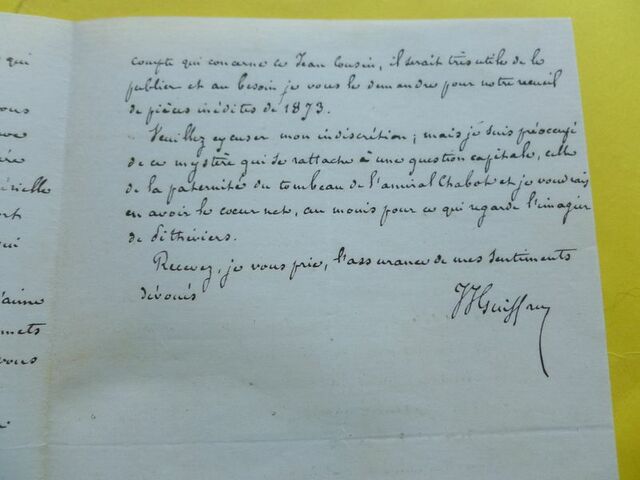 qui
ous
ve
ère
érielle
ort
qui
j'aime
mets
vous
compte qui concerne ce Jean Cousin, il serait très utile de le
publier et au besoin je vous le demandre pour notre recueil
de pièces inédites de 1873.
Veuillez excuser mon indiscrétion ; mais je suis préoccupé
de ce mystère qui se rattache à une question capitale, celle
de la paternité du tombeau de l'amiral Chabot et je voudrais
en avoir le coeur net, au moins pour ce qui regarde l'imagier
de Pithiviers.
Recevez, je vous prie, l'assurance de mes sentiments
dévoués
JJ Guiffrey